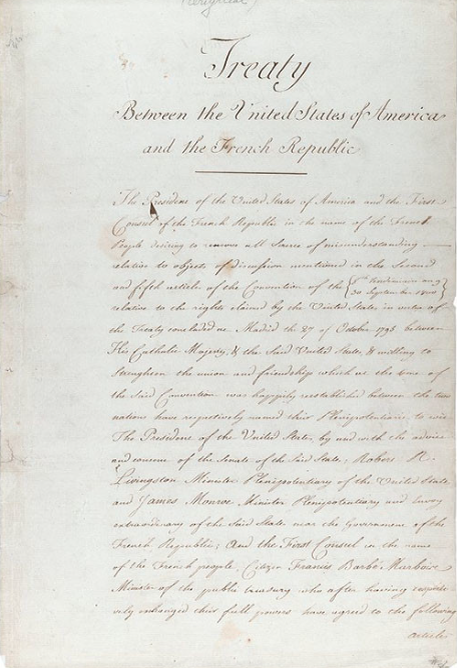 (Original)
Treaty
Between the United States of America
and the French Republic
The President of the United States of America and the First
Consul of the French Republic in the name of the French
People desiring to remove all Source of misunderstanding
relative to objects of discussion mentioned in the Second
and fifth articles of the Convention of the {8th Vendemiaire an 9
30 September 1800}
relative to the rights claimed by the United States in virtue of
the Treaty concluded at Madrid the 27 of October 1795, between
His Catholic Majesty, & the Said United States, & willing to
Strengthen the union and friendship which at the time of
the Said Convention was happily reestablished between the two
nations have respectively named their Plenipotentiaries to wit
The President of the United States, by and with the advice
and consent of the Senate of the Said States; Robert R.
Livingston Minister Plenipotentiary of the United States
and James Monroe Minister Plenipotentiary and Envoy
extraordinary of the Said States near the Government of the
French Republic; And the First Consul in the name
of the French people, Citizen Francis Barbé Marbois
Minister of the public treasury who after having respecti-
vely exchanged their full powers have agreed to the following
articles